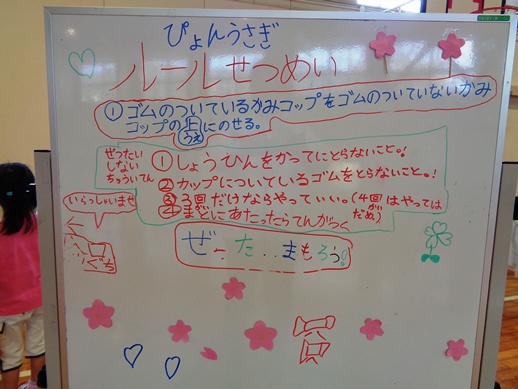 ぴょんうさぎ
ルールせつめい
①ゴムのついているかみコップをゴムのついていないかみ
コップの上にのせる。
うえ
ぜったい
しない
ちゅういてん
①しょうひんをかってにとらないこと。!
②カップについているゴムをとらないこと。!
③3回だけならやっていい。(4回はやっては
がだめ)
④まとにあたったらてんがつく
いらっしゃいませ
ぜ〜た..まもろう!